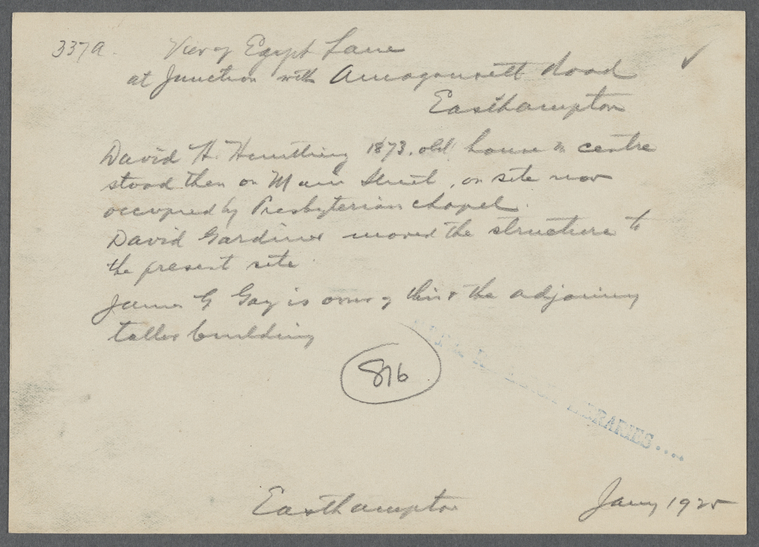 337A. View of Egypt Lane
at Junction with Amagansett Road
Easthampton
David H. Hunthing 1873. old house in centre
stood then on Main Street, on site now
occupied by Presbyterian chapel.
David Gardiner moved the structure to
the present site
James G Gay is owner of this & the adjoining
taller building
876
Easthampton
Jany 1925